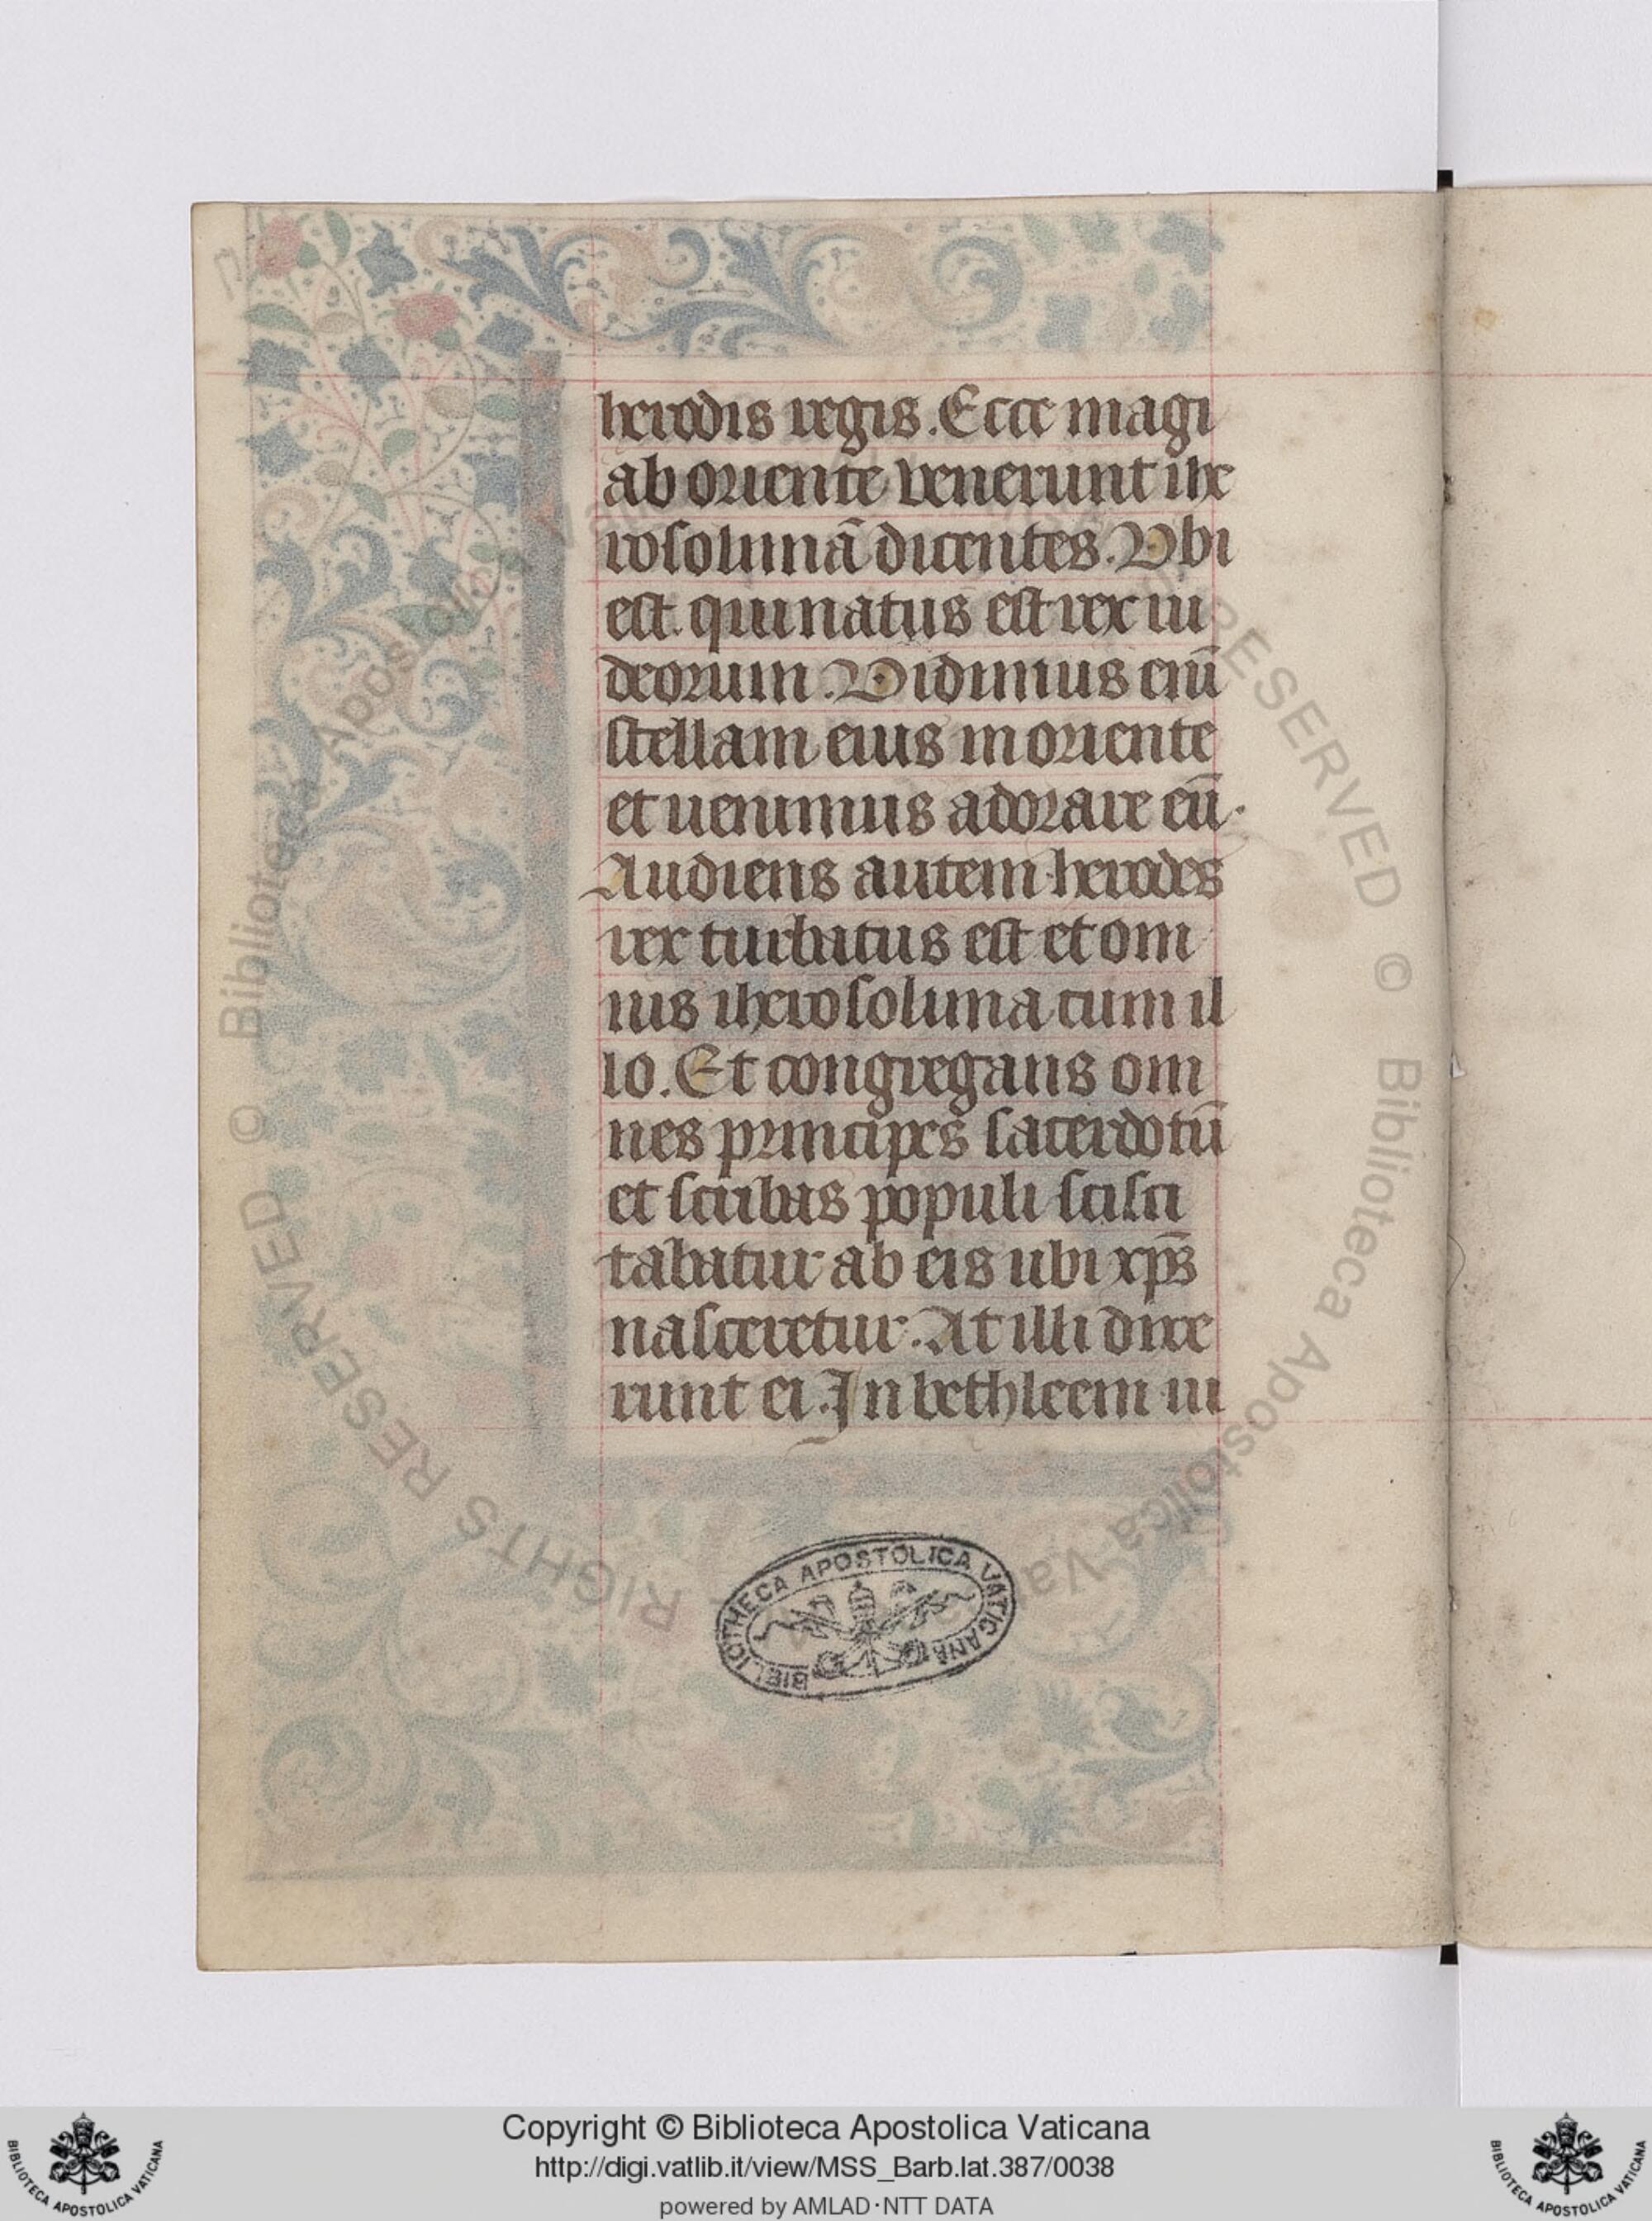 herodis regis. Ecce magi
ab oriente venerunt ihe
rosolimā dicentes. Vbi
est qui natus est rex iu
deorum. Vidimus enī
stellam eius in oriente
et uenimus adorare eū.
Audiens autem herodes
rex turbatus est et om
nis iherosolima cum il
lo. Et congregans om
nes principes sacerdotū
et scribas populi scisci
tabatur ab eis ubi xp̄s
nasceretur. At illi dixe
runt ei. In bethleem iu
BIBLIOTHECA APOSTOLICA VATICANA
RIGHTS RESERVED © Biblioteca Apostolica Vaticana
RESERVED © Biblioteca Apostolica Vaticana
Copyright © Biblioteca Apostolica Vaticana
http://digi.vatlib.it/view/MSS_Barb.lat.387/0038
powered by AMLAD·NTT DATA
BIBLIOTECA APOSTOLICA VATICANA
BIBLIOTECA APOSTOLICA VATICANA